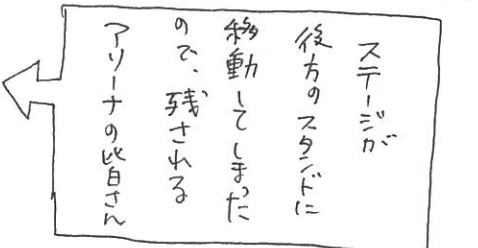 ステージが
後方のスタンドに
移動してしまった
ので、残される
アリーナの皆さん